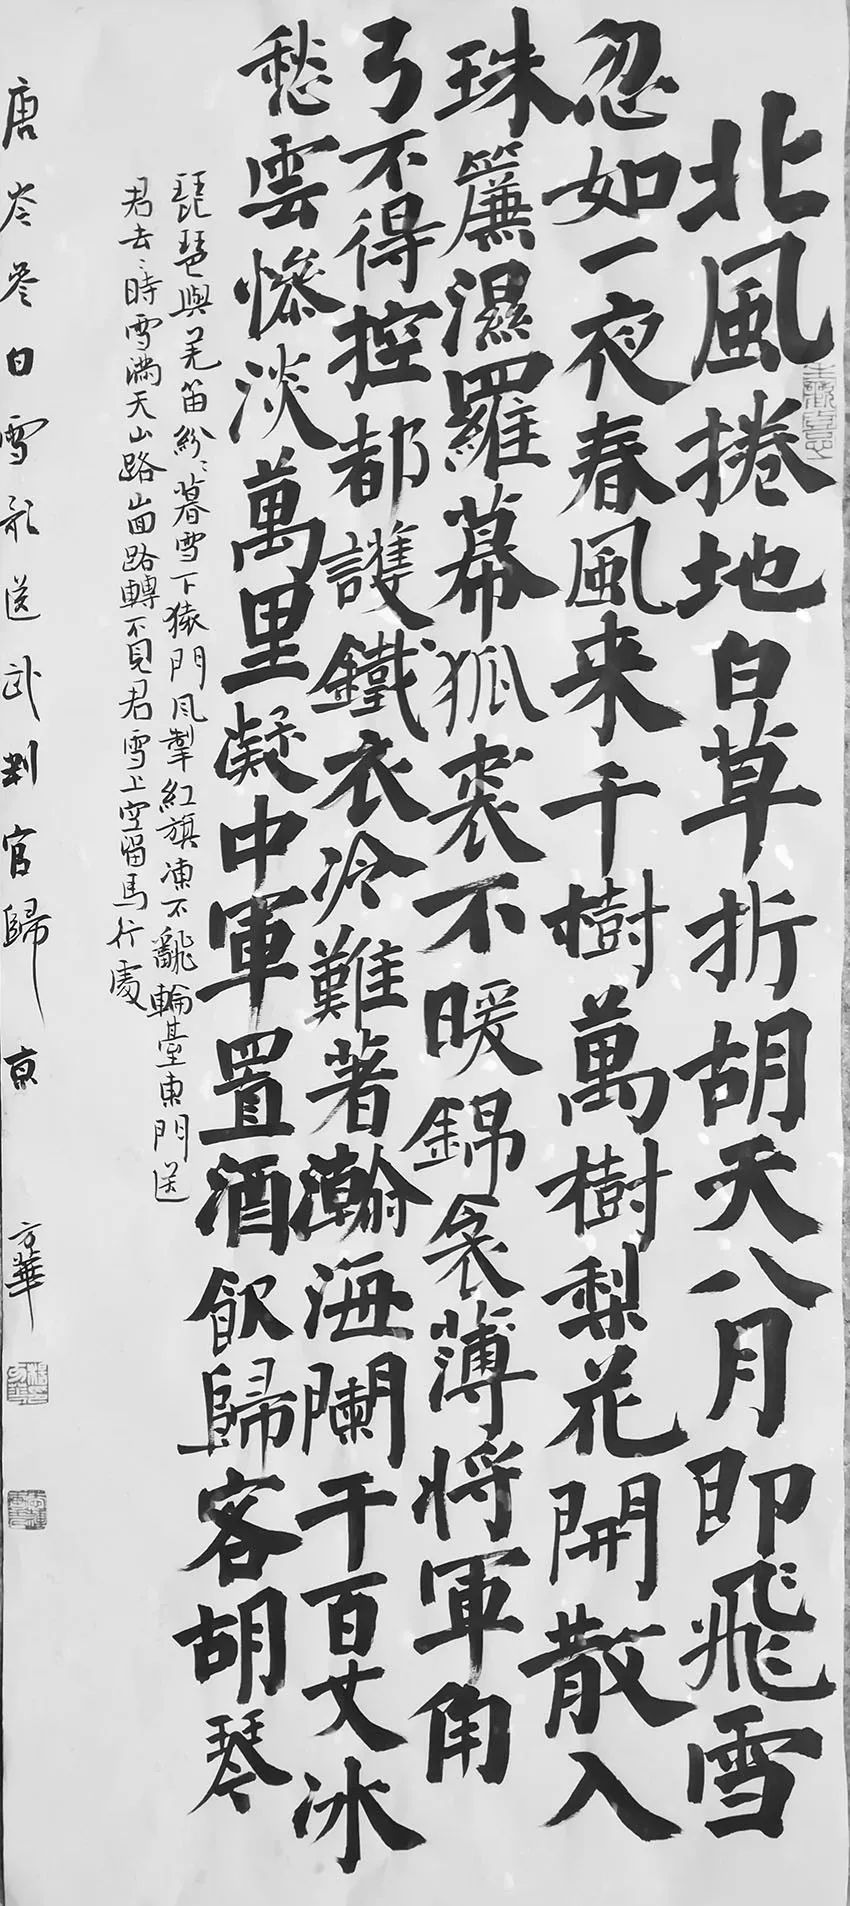 北風捲地白草折胡天八月即飛雪
忽如一夜春風来千樹萬樹梨花開散入
珠簾濕羅幕狐裘不暖錦衾薄將軍角
弓不得控都護鐵衣冷難著瀚海闌干百丈冰
愁雲慘淡萬里凝中軍置酒飲歸客胡琴
琵琶與羌笛紛〻暮雪下猿門风掣紅旗凍不飜輪臺東門送
君去〻時雪滿天山路山囬路轉不見君雪上空留馬行處
唐岑參白雪歌送武判官歸京
方華